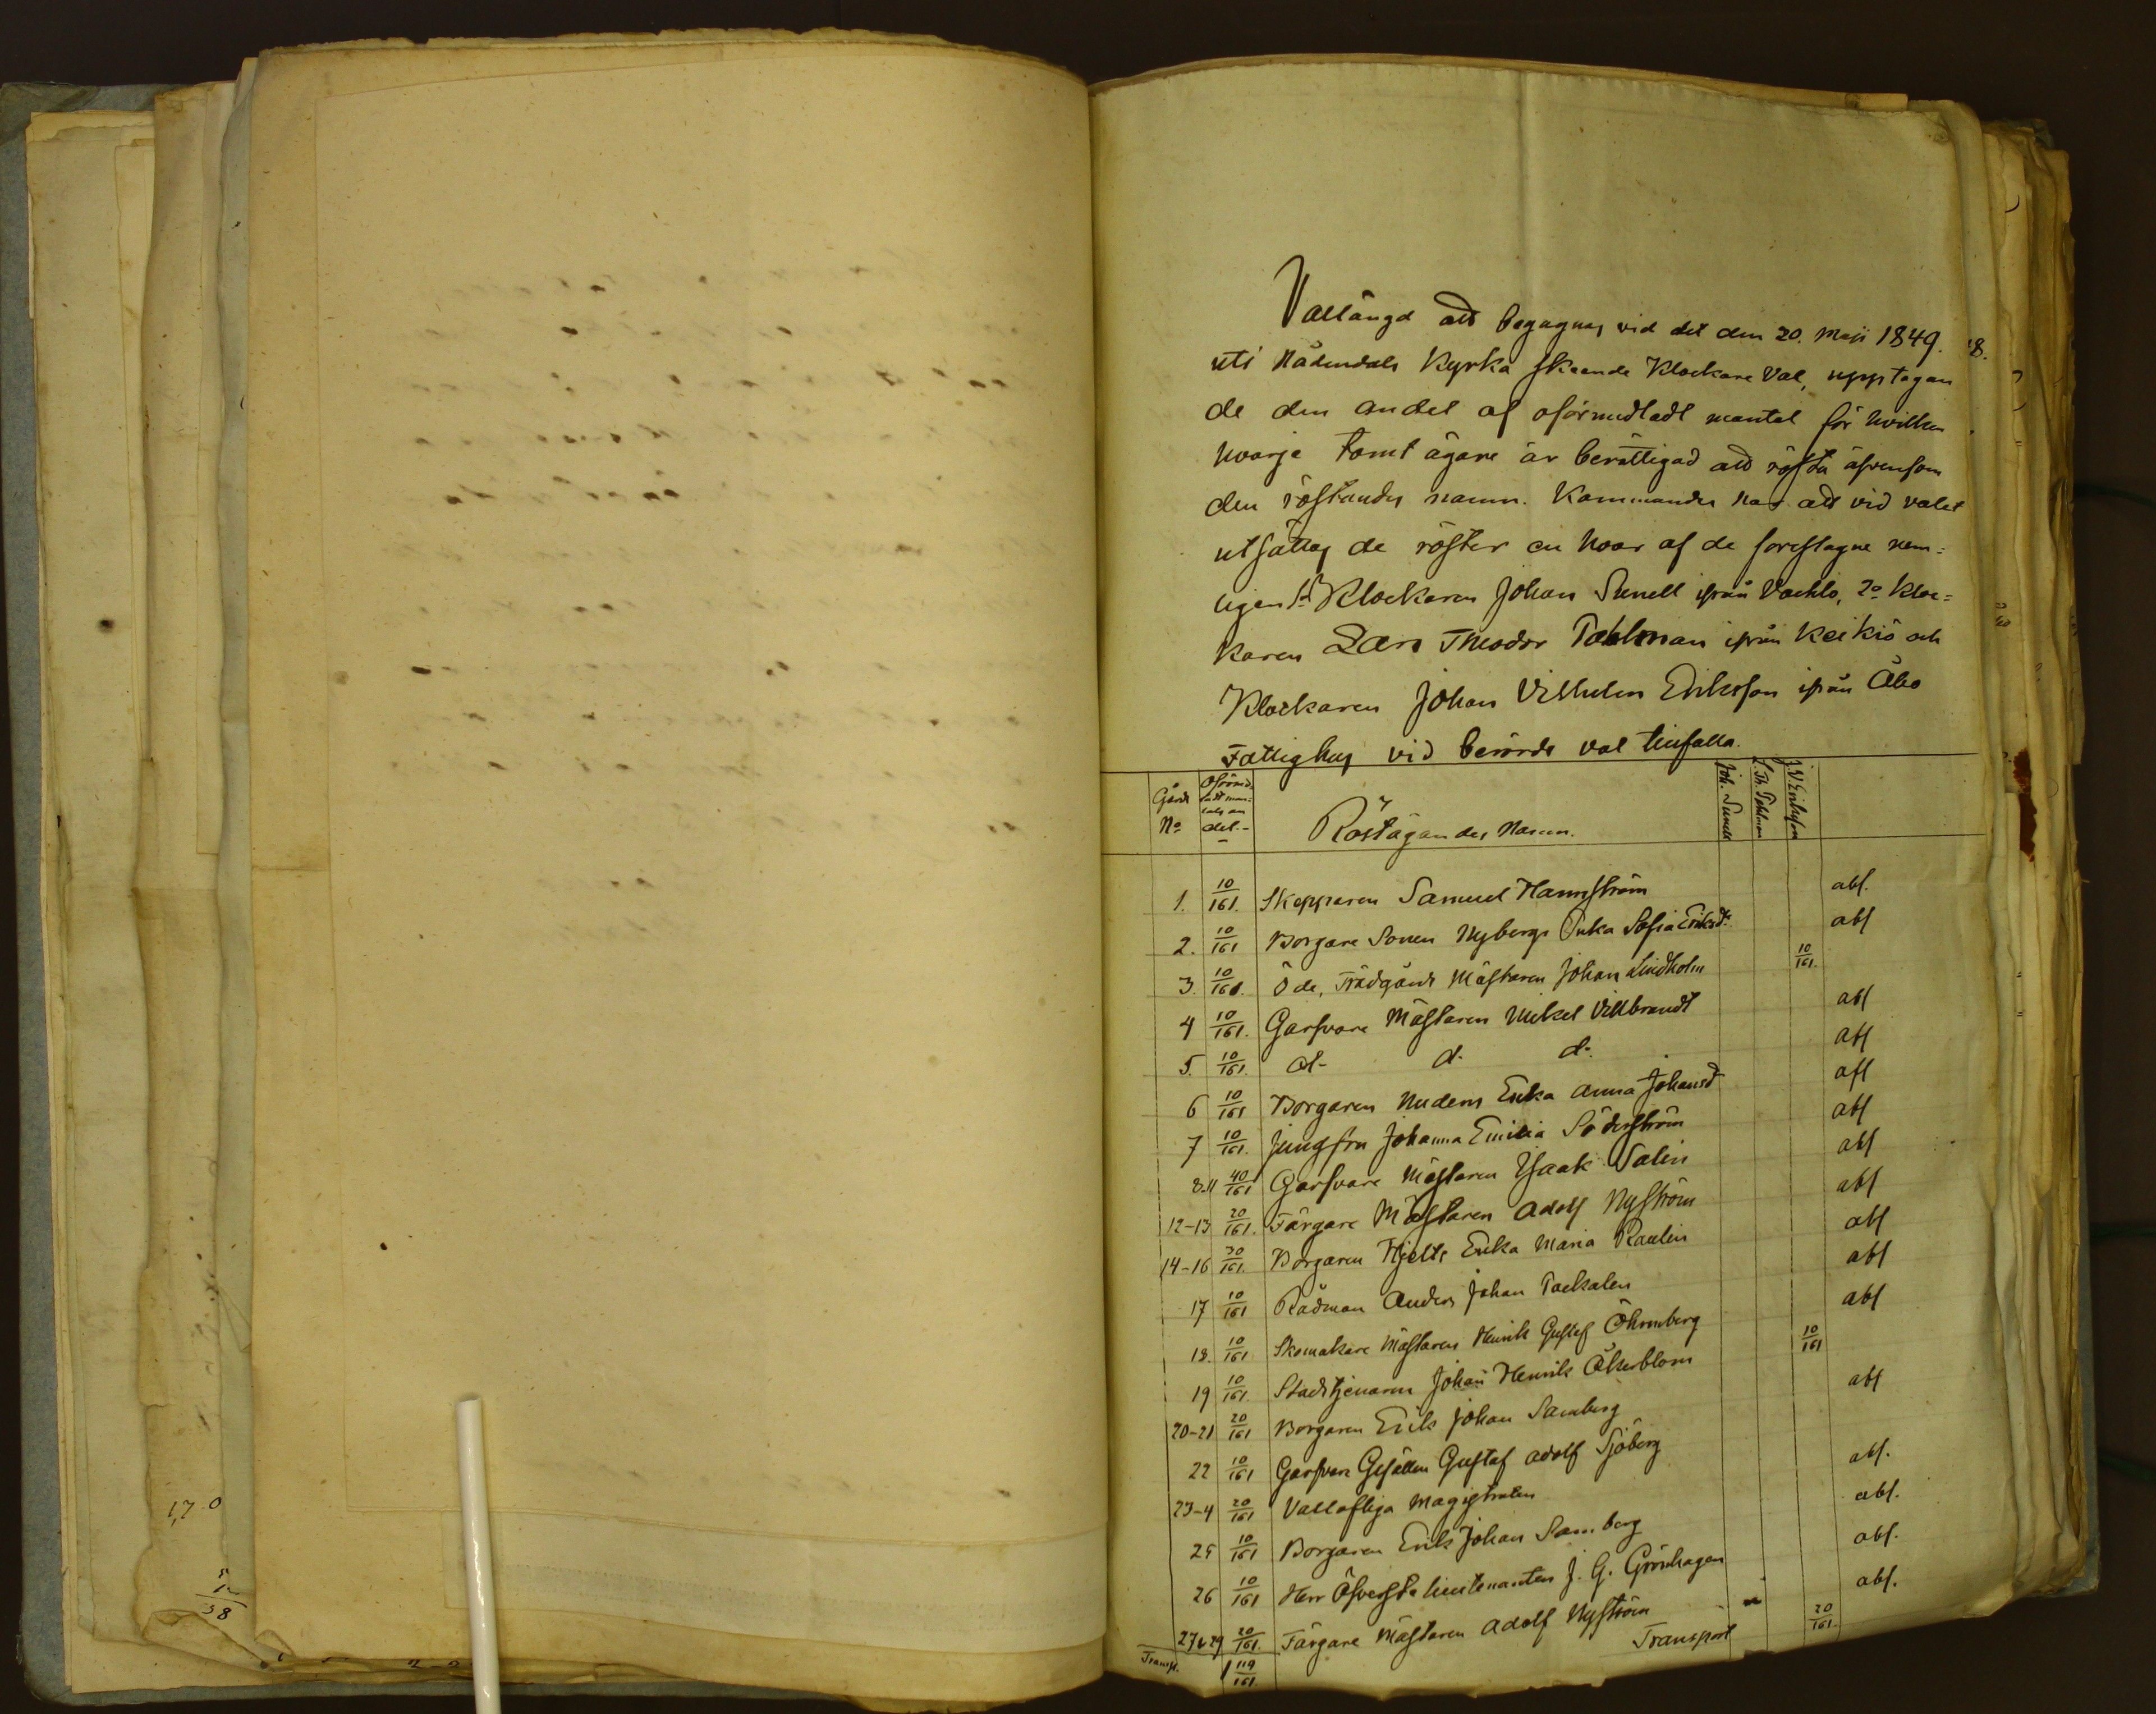 Vallängd att begagnas vid det den 20. Maji 1849.
uti Nådendals Kyrka skeende Klockare Val, upptagan
de den andel af oförmedladt mantal för hvilken
hvarje tomt ägare är berättigad att rösta äfvensom
den röstandes namn. Kommandes har att vid valet
utsättas de röster en hvar af de föreslagne nem=
ligen 1o Klockaren Johan Sunell ifrån Vachlo, 2o Kloc=
karen Lars Theodor Pahlman ifrån Keikiö och
Klockaren Johan Vilhelm Eriksson ifrån Åbo
Fattighus vid berörde val tillfalla.
Gårds No Oförmed ladt man: tals an del.- Röstägandes Namn. Joh. Sunell L. Th. Pahlman J. V. Eriksson
1. 10/161. Skepparen Samuel Hannström abs.
2. 10/161 Borgare Sonen Nybergs Enka Sofia Eriksdr abs
3. 10/161. Öde, Trädgårds Mästaren Johan Lindholm 10/161.
4 10/161. Garfvare Mästaren Mickel Villbrandt abs
5. 10/161. d- d- d- abs
6 10/161 Borgaren Nudens Enka Anna Johansd abs
7 10/161. Jungfru Johanna Emilia Söderström abs
8.11 40/161 Garfvare Mästaren Isaak Salin abs
12-13 20/161. Färgare Mästaren Adolf Nyström abs
14-16 30/161. Borgaren Hjelts Enka Maria Raulin abs
17 10/161 Rådman Anders Johan Tackalen abs
18. 10/161 Skomakare Mästaren Henrik Gustaf Öhrnberg abs
19 10/161. Stadstjenaren Johan Henrik Åkerblom 10/161
20-21 20/161 Borgaren Erik Johan Samberg abs
22 10/161 Garfvare Gesällen Gustaf Adolf Sjöberg
23-4 20/161 Vallofliga Magistraten abs.
25 10/161 Borgaren Erik Johan Samberg abs.
26 10/161 Herr Öfverste Lieutenanten J. G. Grönhagen abs.
27 & 29 20/161. Färgare Mästaren Adolf Nyström abs.
Transp. 1 119/161. Transport 20/161.